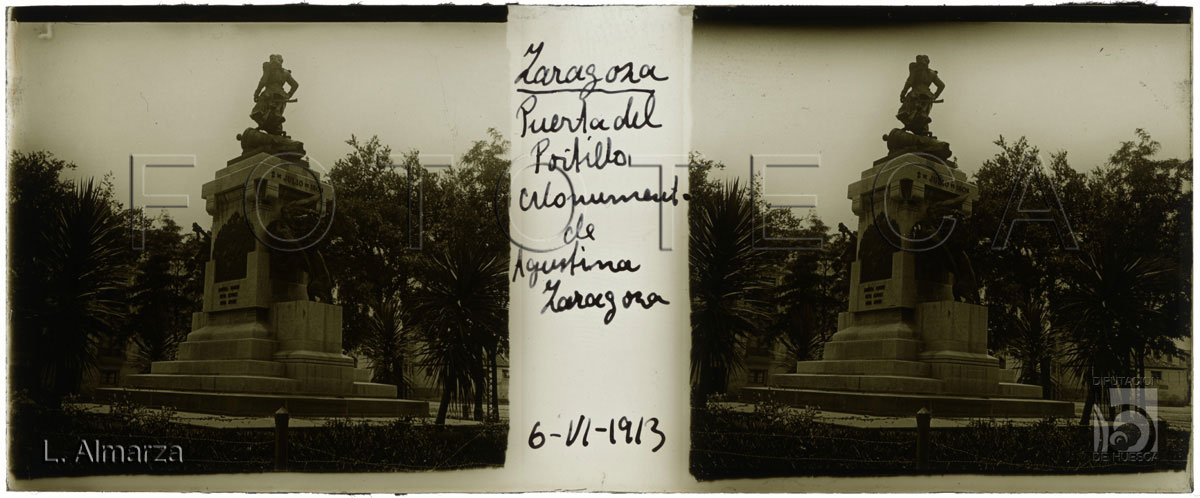 Zaragoza
Puerta del
Portillo
Monument.
de
Agustina
Zaragoza
6-VI-1913
FOTOTECA
L. Almarza
DIPUTACIÓN
DE HUESCA